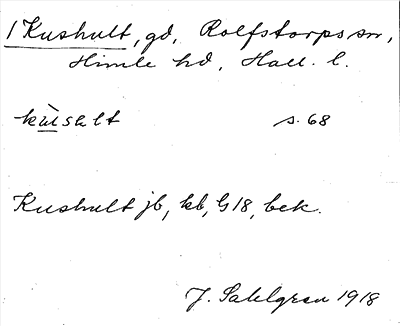 1 Kushult, gd, Rolfstorps sn,
Himle hd, Hall. l.
kùsalt s. 68
Kushult jb, kb, G18, bek.
J. Sahlgren 1918